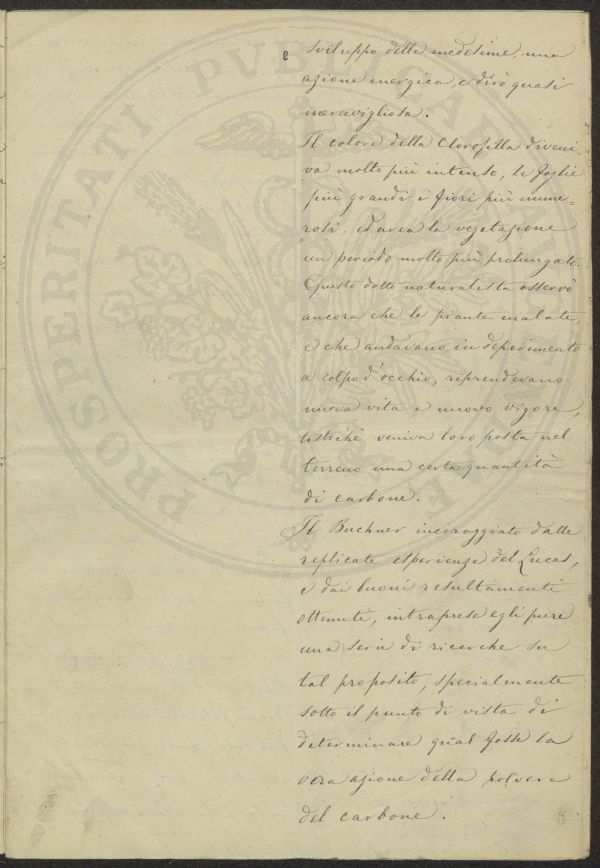 e sviluppo delle medesime, una
azione energica, e dirò quasi
meravigliosa.
Il colore della Clorofilla diveni-
va molto più intenso, le foglie
più grandi, i fiori più nume-
rosi, ed avea la vegetazione
un periodo molto più prolungato.
Questo dotto naturalista osservò
ancora che le piante malate,
e che andavano in deperimento
a colpo d'occhio, riprendevano
nuova vita e nuovo vigore,
tostochè veniva loro posta nel
terreno una certa quantità
di carbone.
Il Buchner incoraggiato dalle
replicate esperienze del Lucas,
e dai buoni resultamenti
ottenuti, intraprese egli pure
una serie di ricerche su
tal proposito, specialmente
sotto il punto di vista di
determinare qual fosse la
vera azione della polvere
del carbone.
PROSPERITATI PUBLICAE